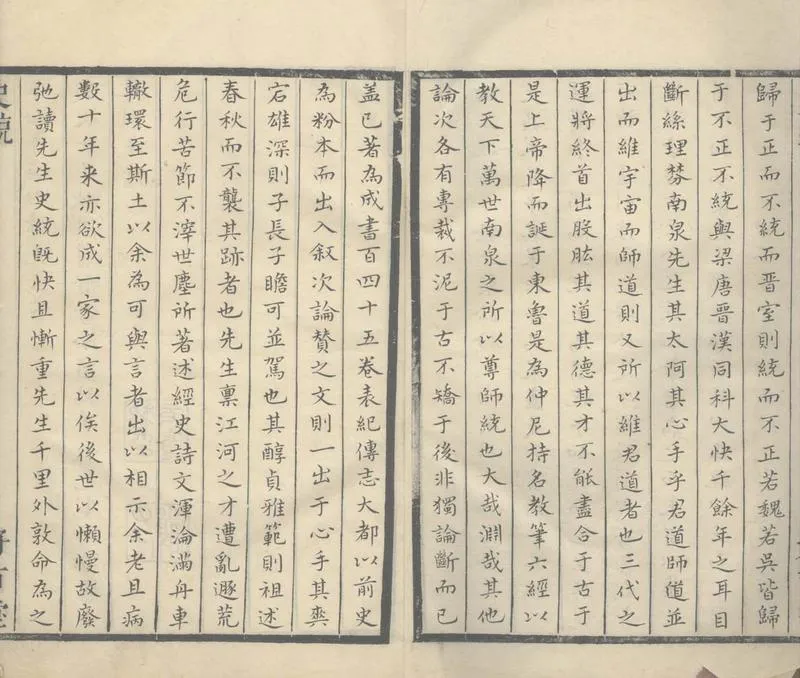 歸于正而不統而晋室則統而不正若魏若吳皆歸
于不正不統與梁唐晋漢同科大快千餘年之耳目
斷絲理棼南泉先生其太阿其心手乎君道師道並
出而維宇宙而師道則又所以維君道者也三代之
運將終首出股肱其道其德其才不能盡合于古于
是上帝降而誕于東魯是為仲尼持名教筆六經以
教天下萬世南泉之所以尊師統也大哉淵哉其他
論次各有專裁不泥于古不矯于後非獨論斷而已
盖已著為成書百四十五卷表紀傳志大都以前史
為粉本而出入叙次論贊之文則一出于心手其奥
宕雄深則子長子瞻可並駕也其醇貞雅範則祖述
春秋而不襲其跡者也先生禀江河之才遭亂遯荒
危行苦節不滓世塵所著述經史詩文渾淪滿舟車
轍環至斯土以余為可與言者出以相示余老且病
數十年来亦欲成一家之言以俟後世以懶慢故廢
弛讀先生史統既快且慚重先生千里外敦命為之
史統